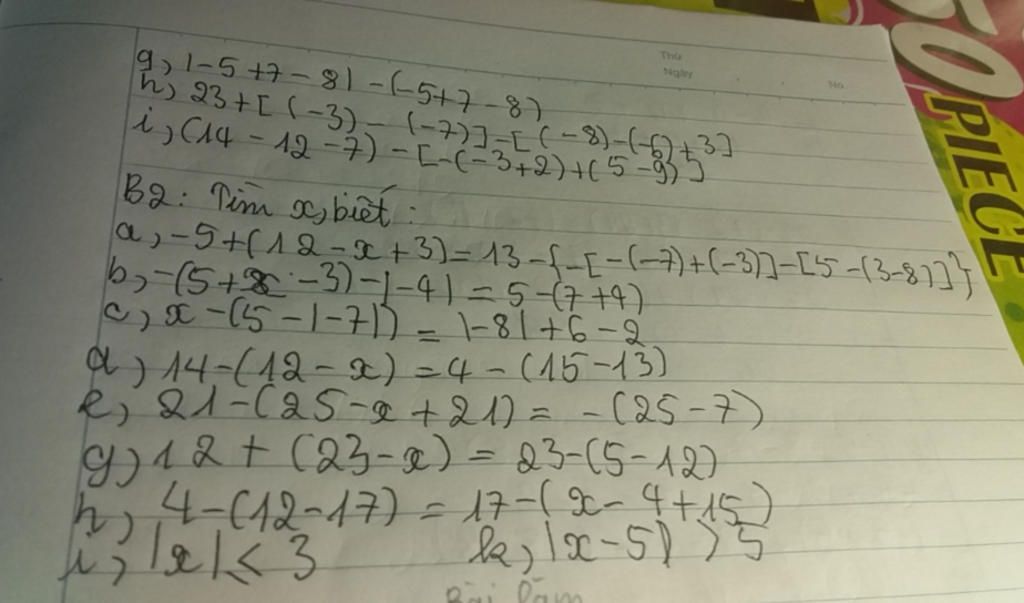 Thứ
Ngày
No.
PIECE
g, |-5+7-8| - (-5+7-8)
h, 23+[(-3) - (-7)] - [(-8)-(-6)+3]
i, (14-12-7) - [-(-3+2)+(5-9)]
B2: Tìm x, biết:
a, -5+(12-x+3) = 13-{-[-(-7)+(-3)]-[5-(3-8)]}
b, -(5+x-3)-|-4| = 5-(7+4)
c, x-(5-|-7|) = |-8|+6-2
d, 14-(12-x) = 4-(15-13)
e, 21-(25-x+21) = -(25-7)
g, 12+(23-x) = 23-(5-12)
h, 4-(12-17) = 17-(x-4+15)
i, |x| < 3 k, |x-5| > 5
Bài làm